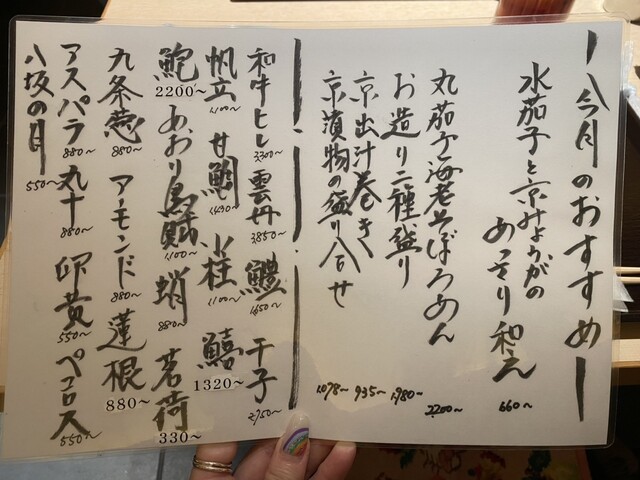 今月のおすすめ
水茄子と京みょうがの
あっさり和え 660〜
丸茄子海老そぼろあん 2200〜
お造り二種盛り 1,980〜
京出汁巻き 935〜
京漬物の盛り合せ 1,078〜
和牛ヒレ 3300〜 雲丹 3,850〜 鱧 1650〜 干子 2,750〜
帆立 1,100〜 甘鯛 1,430〜 小柱 1100〜 鱚 1320〜
鮑 2200〜 あおり烏賊 1,100〜 蛸 880〜 茗荷 330〜
九条葱 880〜 アーモンド 880〜 蓮根 880〜
アスパラ 880〜 丸十 880〜 卵黄 550〜 ペコロス 550〜
八坂の月 550〜